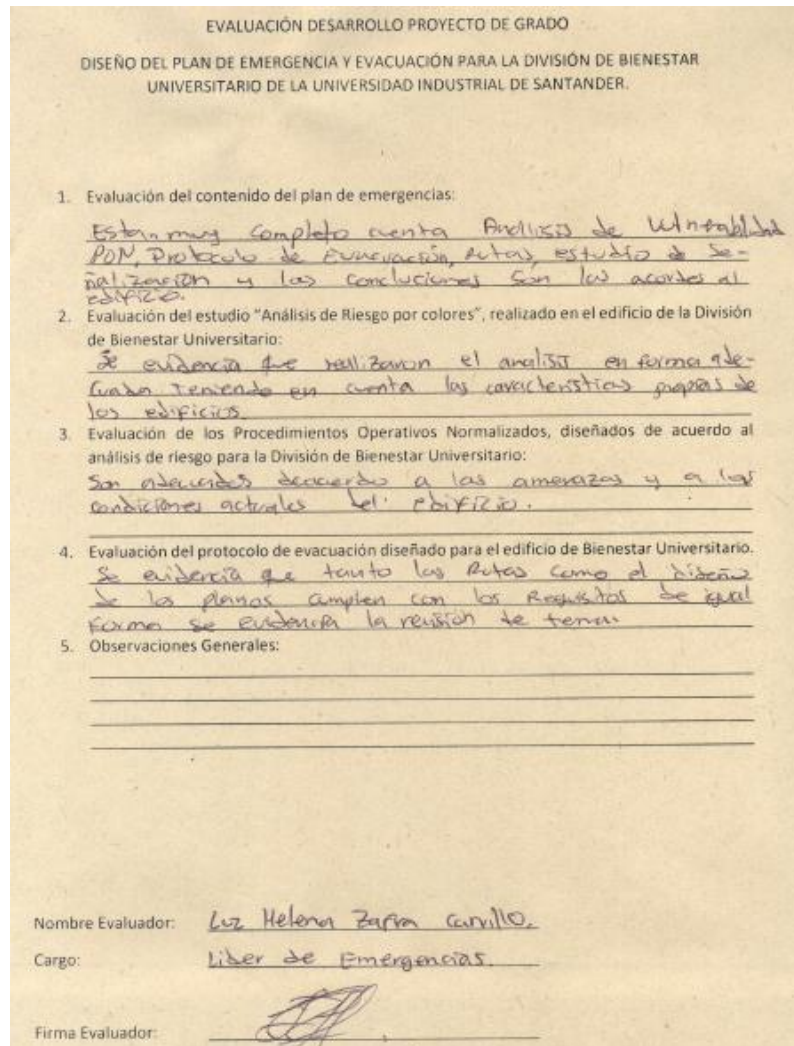 EVALUACIÓN DESARROLLO PROYECTO DE GRADO
DISEÑO DEL PLAN DE EMERGENCIA Y EVACUACIÓN PARA LA DIVISIÓN DE BIENESTAR
UNIVERSITARIO DE LA UNIVERSIDAD INDUSTRIAL DE SANTANDER.
1. Evaluación del contenido del plan de emergencias:
Esta muy completo cuenta Análisis de
PON, Protocolo de Evacuación, Rutas, estudio de Se-
ñalización y las concluciones son las acordes al
edificio.
2. Evaluación del estudio "Análisis de Riesgo por colores", realizado en el edificio de la División
de Bienestar Universitario:
Se evidencia que realizaron el analisis en forma ade-
cuada Teniendo en cuenta las caracteristicas propias de
los edificios.
3. Evaluación de los Procedimientos Operativos Normalizados, diseñados de acuerdo al
análisis de riesgo para la División de Bienestar Universitario:
Son adecuados deacuerdo a las amenazas y a las
condiciones actuales del edificio.
4. Evaluación del protocolo de evacuación diseñado para el edificio de Bienestar Universitario.
Se evidencia que tanto las Rutas como el diseño
de los planos cumplen con los Requisitos de igual
forma se evidencia la revisión de temas
5. Observaciones Generales:
Nombre Evaluador: Luz Helena Zafra
Cargo: Lider de Emergencias.
Firma Evaluador: